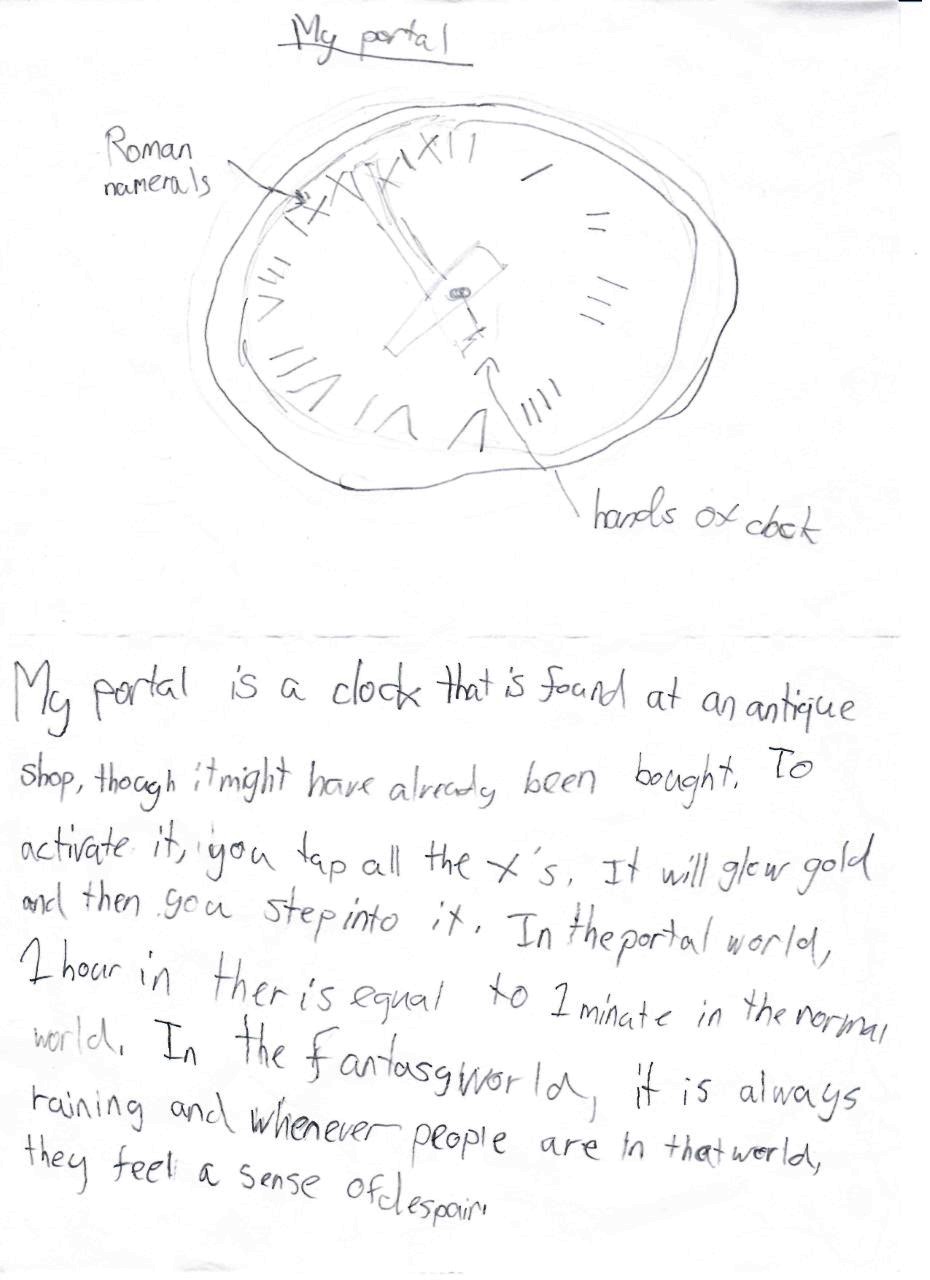 My portal
Roman
namerals
XII
I
II
III
IIII
V
VI
VII
VIII
IX
X
XI
hands of clock
My portal is a clock that is found at an antique
shop, though it might have already been bought. To
activate it, you tap all the x's. It will glow gold
and then you step into it. In the portal world,
1 hour in ther is equal to 1 minate in the normal
world. In the fantasy world, it is always
raining and whenever people are in that world,
they feel a sense of despair.